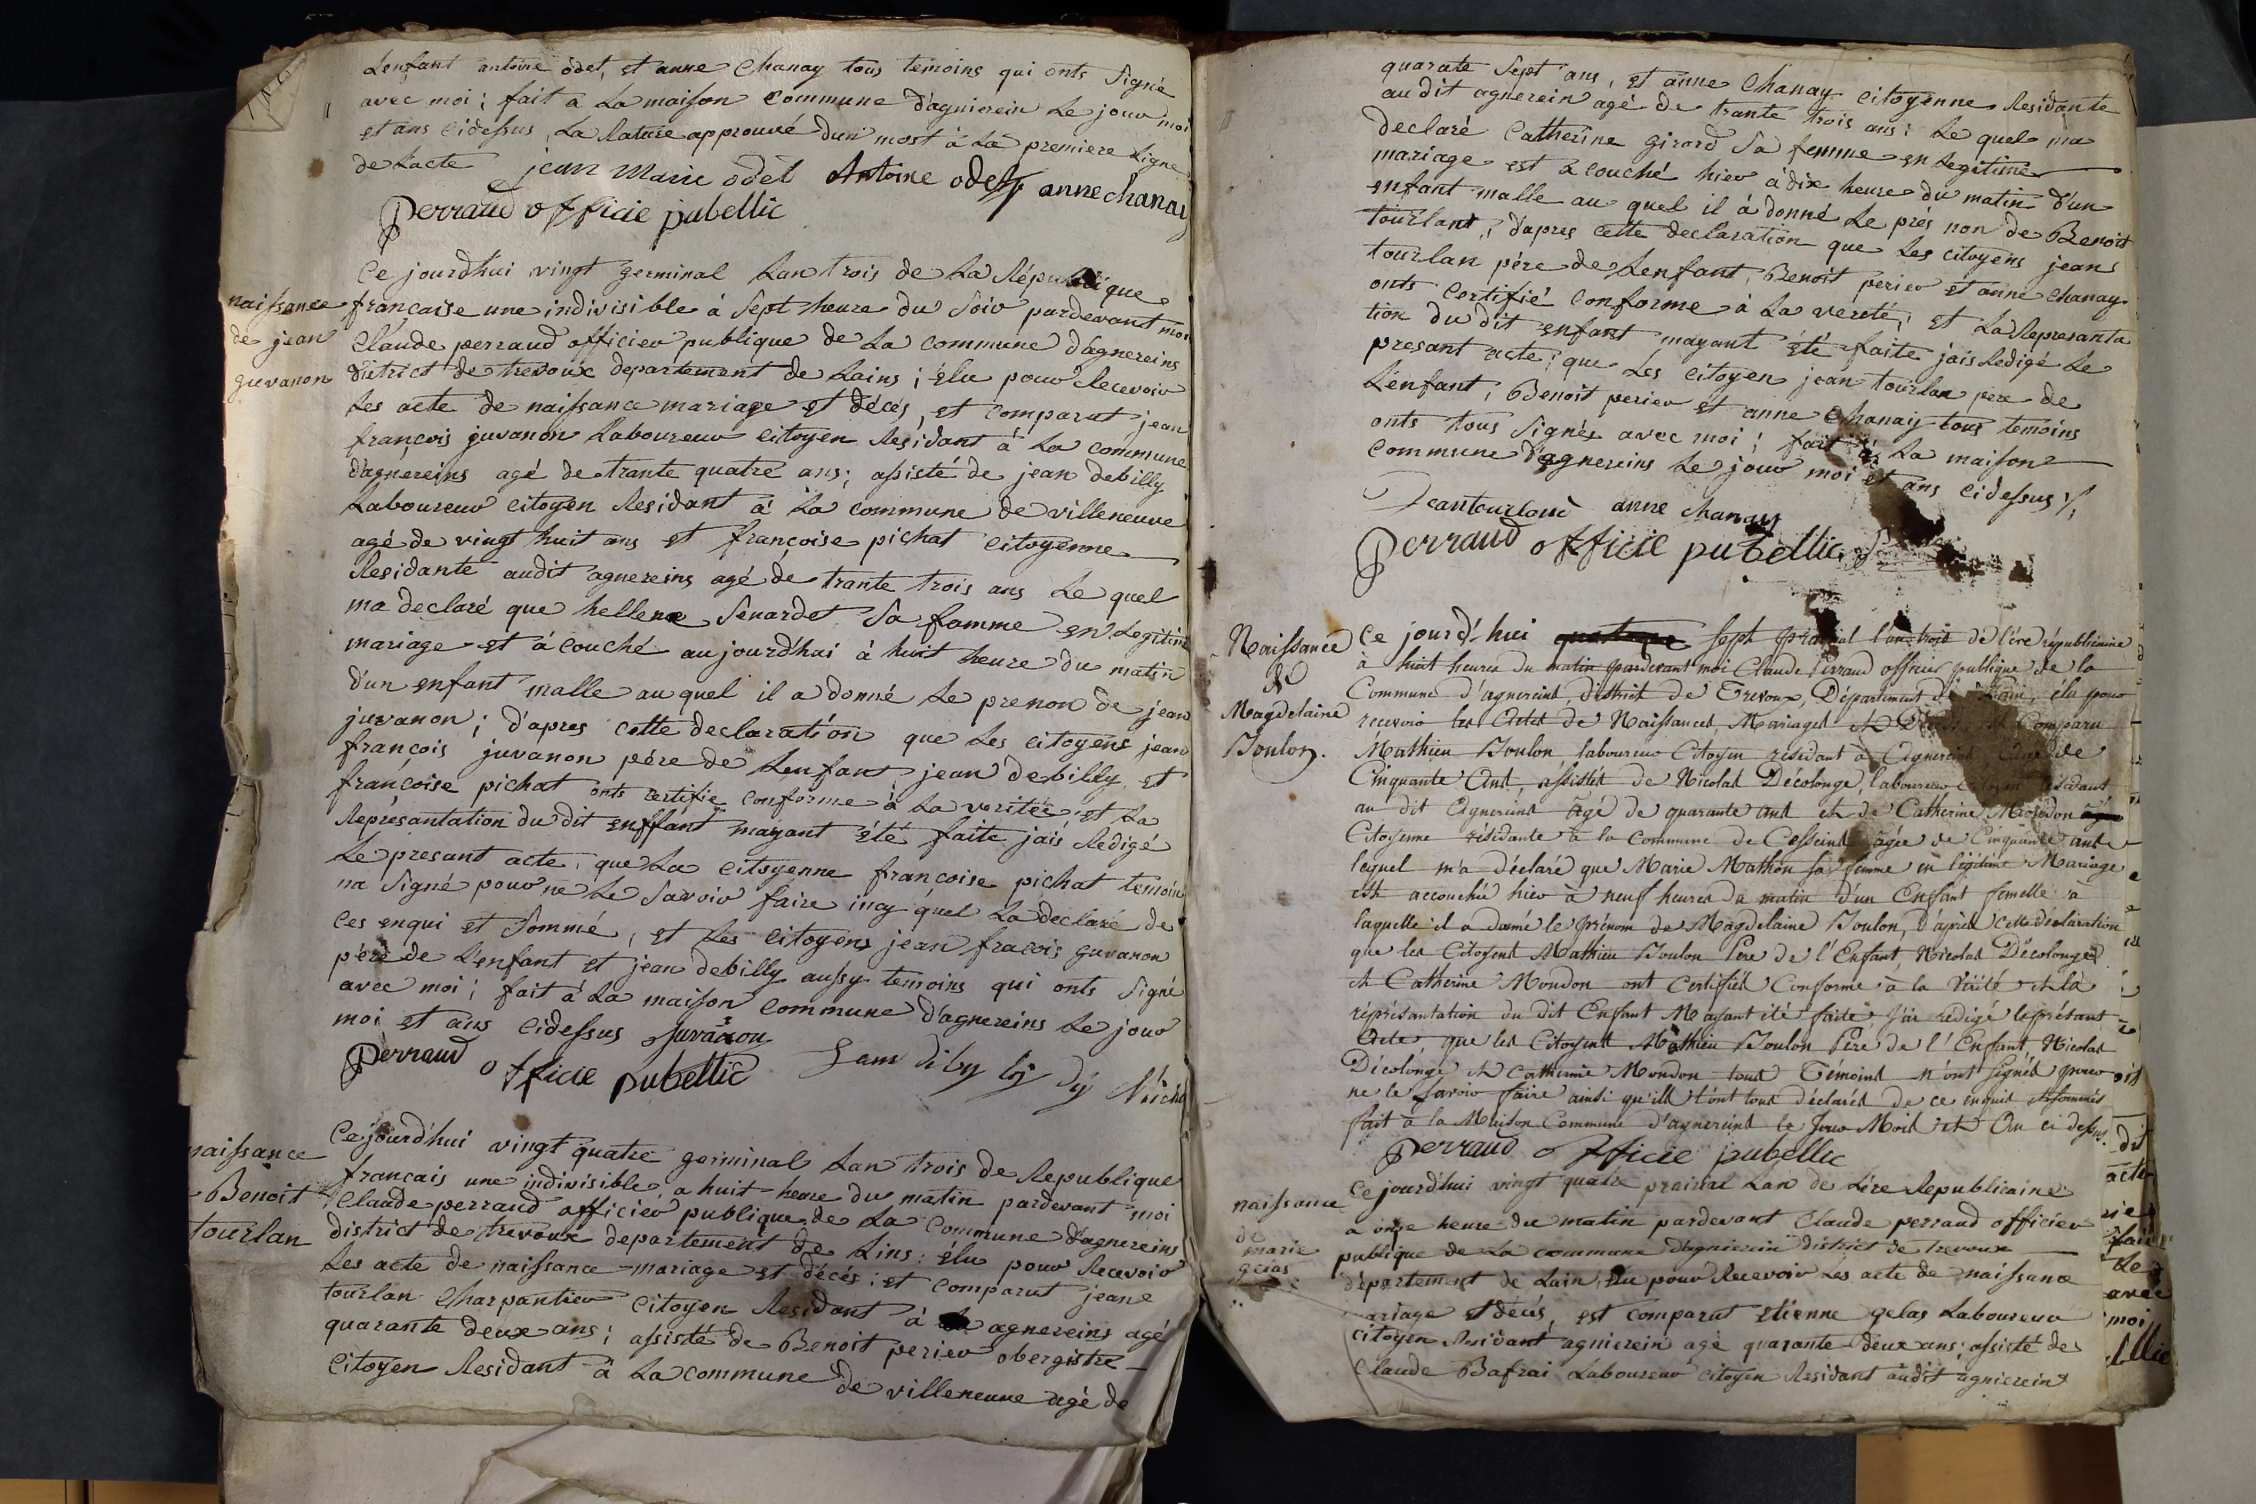 Lenfant antoine odet, et anne Chanay tous temoins qui onts Signé
avec moi ; fait a La maison Commune d'agnierein Le jour moi
et ans cidessus, La Rature approuvé dun most à La premiere Ligne
de Lacte jean marie odet Antoine odet anne chanay
Perraud officie pubellic
Ce jourd'hui vingt germinal Lan trois de La République
naissance
de jean
guvanon
francaise une indivisible à Sept heure du Soir pardevant moi
Claude perraud officier publique de La Commune d'agnereins
district de trevoux departement de Lains ; élu pour Recevoir
Les acte de naissance mariage et décés, et comparut jean
françois juvanon Laboureur citoyen Residant à La commune
d'agnereins agé de trante quatre ans ; assisté de jean debilly
Laboureur citoyen Residant à La commune de villeneuve
agé de vingt huit ans et françoise pichat citoyenne
Residante audit agnereins agé de trante trois ans Le quel
ma declaré que hellene Senardet Sa famme en Legitime
mariage et à couché aujourd'hui à huit heure du matin
d'un enfant malle au quel il a donné Le prenon de jean
juvanon ; d'apres cette declaration que Les citoyens jean
françois juvanon pére de Lenfant jean debilly et
françoise pichat onts certifie conforme à La veritée et La
Représantation du dit enffant mayant été faite jais Redigé
Le presant acte, que La citoyenne francoise pichat temoin
na Signé pour ne Le Savoir faire incy quel La declaré de
ces enqui et Sommé, et Les citoyens jean fracois guvanon
pére de Lenfant et jean debilly aussy temoins qui onts Signé
avec moi ; fait à La maison commune d'agnereins Le jour
moi et ans cidessus Juvanon
Perraud officie pubellic
naissance
Benoit
tourlan
Ce jourd'hui vingt quatre germinal Lan trois de Republique
francais une indivisible, a huit heure du matin pardevant moi
Claude perraud officier publique de La Commune d'agnereins
district de trevoux departement de Lins ; élu pour Recevoir
Les acte de naissance mariage et décés ; et comparut jean
tourlan Charpantier citoyen Residant à agnereins agé
quarante deux ans ; assisté de Benoit perier obergistre
Citoyen Residant à La commune de villeneuve agé de
quarate Sept ans, et anne Chanay citoyenne Residante
au dit agnerein agé de trante trois ans ; Le quel ma
declaré Catherine girard Sa femme en Legitime
mariage est à couché hier à dix heure du matin d'un
enfant malle au quel il à donné Le prés non de Benoit
tourlant, ; d'apres cette declaration que Les citoyens jean
tourlan pére de Lenfant, Benoit perier et anne chanay
onts certifié conforme à La vereté ; et La Represanta
tion du dit enfant mayant été faite jais Redigé Le
presant acte ; que Les citoyen jean tourlan pere de
Lenfant, Benoit perier et anne Chanay tous temoins
onts tous Signés avec moi ; fait à La maison
commune d'agnereins Le jour moi et ans cidessus
Jean tourlans anne chanay
Perraud officie pubellic
Naissance
De
Magdelaine
Joulon.
Ce jourd'-hui Sept prairial l'an trois de l'ére républicaine
à huit heures du matin pardevant moi Claude Perraud officier publique de la
Commune d'agnereins district de Trevoux, Département de l'Ain, élu pour
recevoir les Actes de Naissances, Mariages et Décés, est Comparu
Mathieu Joulon laboureur Citoyen résidant à Agnereins Agé de
Cinquante Ans, assistés de Nicolas Décolonge, laboureur Citoyen résidant
au dit Agnereins agé de quarante ans et de Catherine Mondon
Citoyenne résidante à la Commune de Cesseins agée de Cinquante ans
lequel m'a déclaré que Marie Mathon sa femme en légitime Mariage
est accouchée hier à neuf heures du matin d'un Enfant femelle à
laquelle il a donné le prénom de Magdelaine Joulon, D'après cette déclaration
que les Citoyens Mathieu Joulon Pere de l'Enfant, Nicolas Décolonges
et Catherine Mondon ont Certifiés Conforme à la Vérité et la
réprésantation du dit Enfant Mayant été faite, j'ai redigé le présant
Acte que les Citoyens Mathieu Joulon Père de l'Enfant Nicolas
Décolonge et Catherine Mondon tous Témoins n'ont signés pour
ne le savoir faire ainsi qu'ills l'ont tous déclarés de ce enquis et sommés
fait à la Maison Commune d'agnereins le Jour Mois et An ci dessus.
Perraud officie pubellic
naissance
de
marie
gelas
Ce jourd'hui vingt quatre prairial Lan de Lére Republicaine
a onze heure du matin pardevant Claude perraud officier
publique de La commune d'agnierein district de trevoux
département de Lain, élu pour Recevoir Les acte de naissance
mariage et décés, est comparut etienne gelas Laboureur
citoyen Residant agnierein agé quarante deux ans ; assisté de
Claude Bafrai Laboureur citoyen Residant audit agnierein